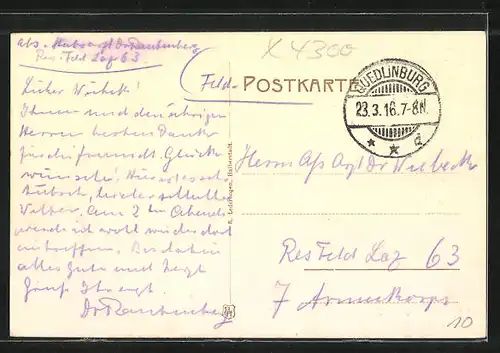 Abs. Stabsarzt Dr Rautenberg
Res. Feld Laz 63.
X 4300
Feld-
POSTKARTE
QUEDLINBURG
23.3.16.7-8N.
* * d
Lieber
Ihnen und den übrigen
Herren besten Dank
für die freundl. Glück-
wünsche! Hier ist es sehr
hübsch, leider schlechtes
Wetter. Am 2ten Abends
werde ich wohl wieder dort
eintreffen. Bis dahin
alles Gute und herzl.
Gruß Ihr ergb.
Dr Rautenberg
Herrn Ass Arzt Dr
Res Feld Laz 63
7 Armeekorps
10